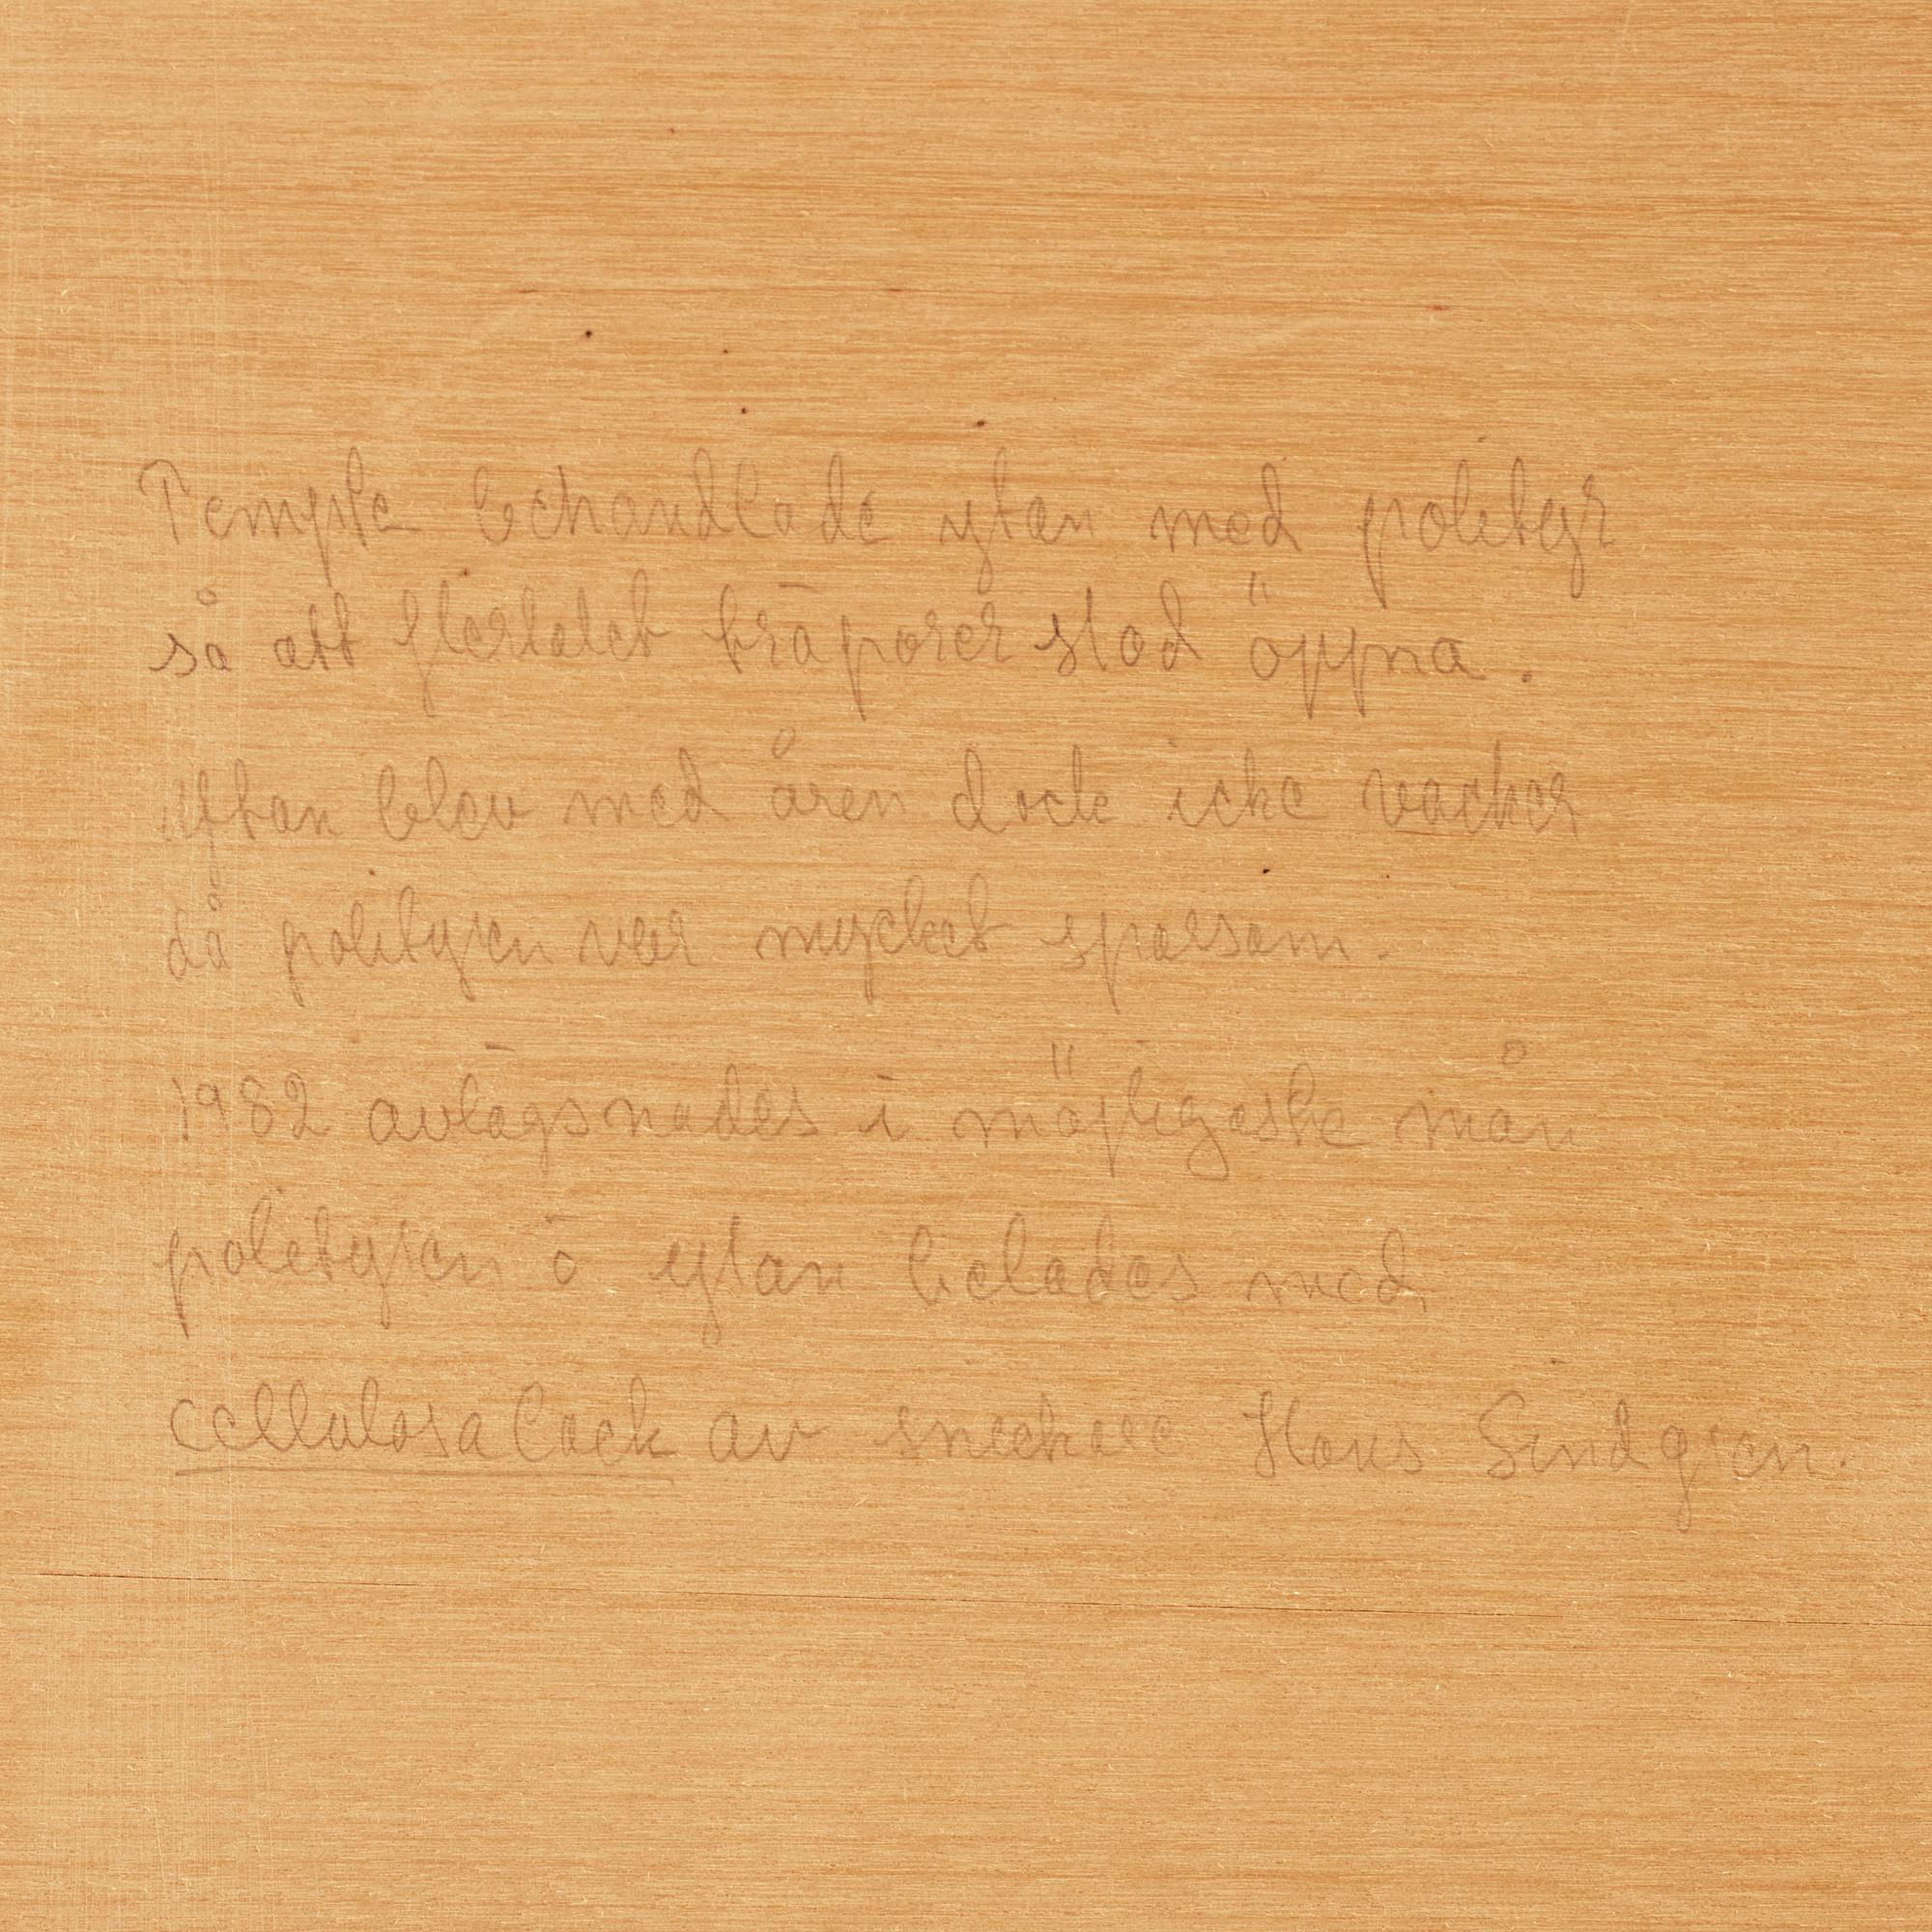 Tempte behandlade ytan med polityr
så att flertalet träporer stod öppna.
Ytan blev med åren dock icke vacker
då polityren var mycket sparsam.
1982 avlägsnades i möjligaste mån
polityren o ytan belades med
cellulosalack av snickare Hans Lindgren.